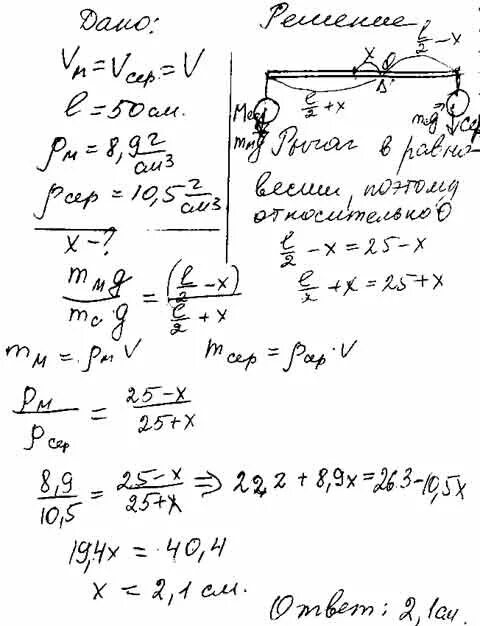 Дано:
V_м = V_сер = V
l = 50 см.
ρ_м = 8,9 г/см³
ρ_сер = 10,5 г/см³
x - ?
Решение
x
l/2 - x
O
l/2 + x
m_м g
Рычаг в равно-
весии, поэтому
относительно О
l/2 - x = 25 - x
l/2 + x = 25 + x
m_м g / m_с g = (l/2 - x) / (l/2 + x)
m_м = ρ_м V m_сер = ρ_сер · V
ρ_м / ρ_сер = (25 - x) / (25 + x)
8,9 / 10,5 = (25 - x) / (25 + x) ⇒ 222 + 8,9x = 263 - 10,5x
19,4x = 40,4
x = 2,1 см.
Ответ: 2,1 см.